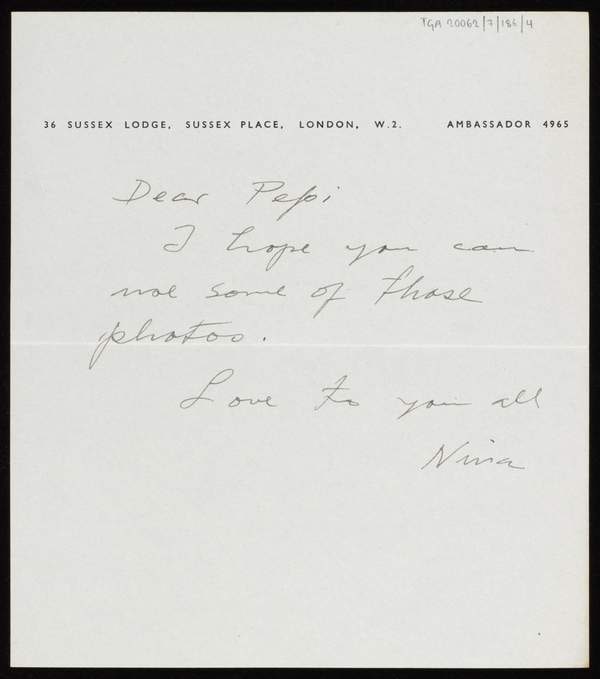 TGA 20062/7/186/4
36 SUSSEX LODGE, SUSSEX PLACE, LONDON, W.2. AMBASSADOR 4965
Dear Pepi
I hope you can
use some of those
photos.
Love to you all
Nina